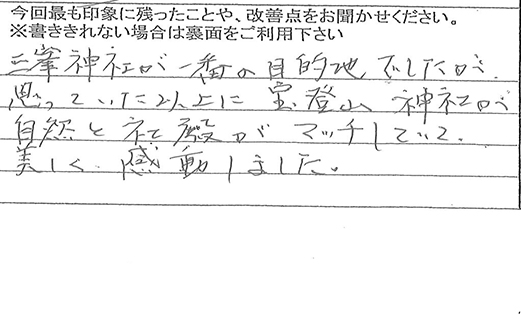 今回最も印象に残ったことや、改善点をお聞かせください。
※書ききれない場合は裏面をご利用下さい
三峯神社が一番の目的地でしたが、
思っていた以上に宝登山神社が
自然と社殿がマッチしていて、
美しく感動しました。